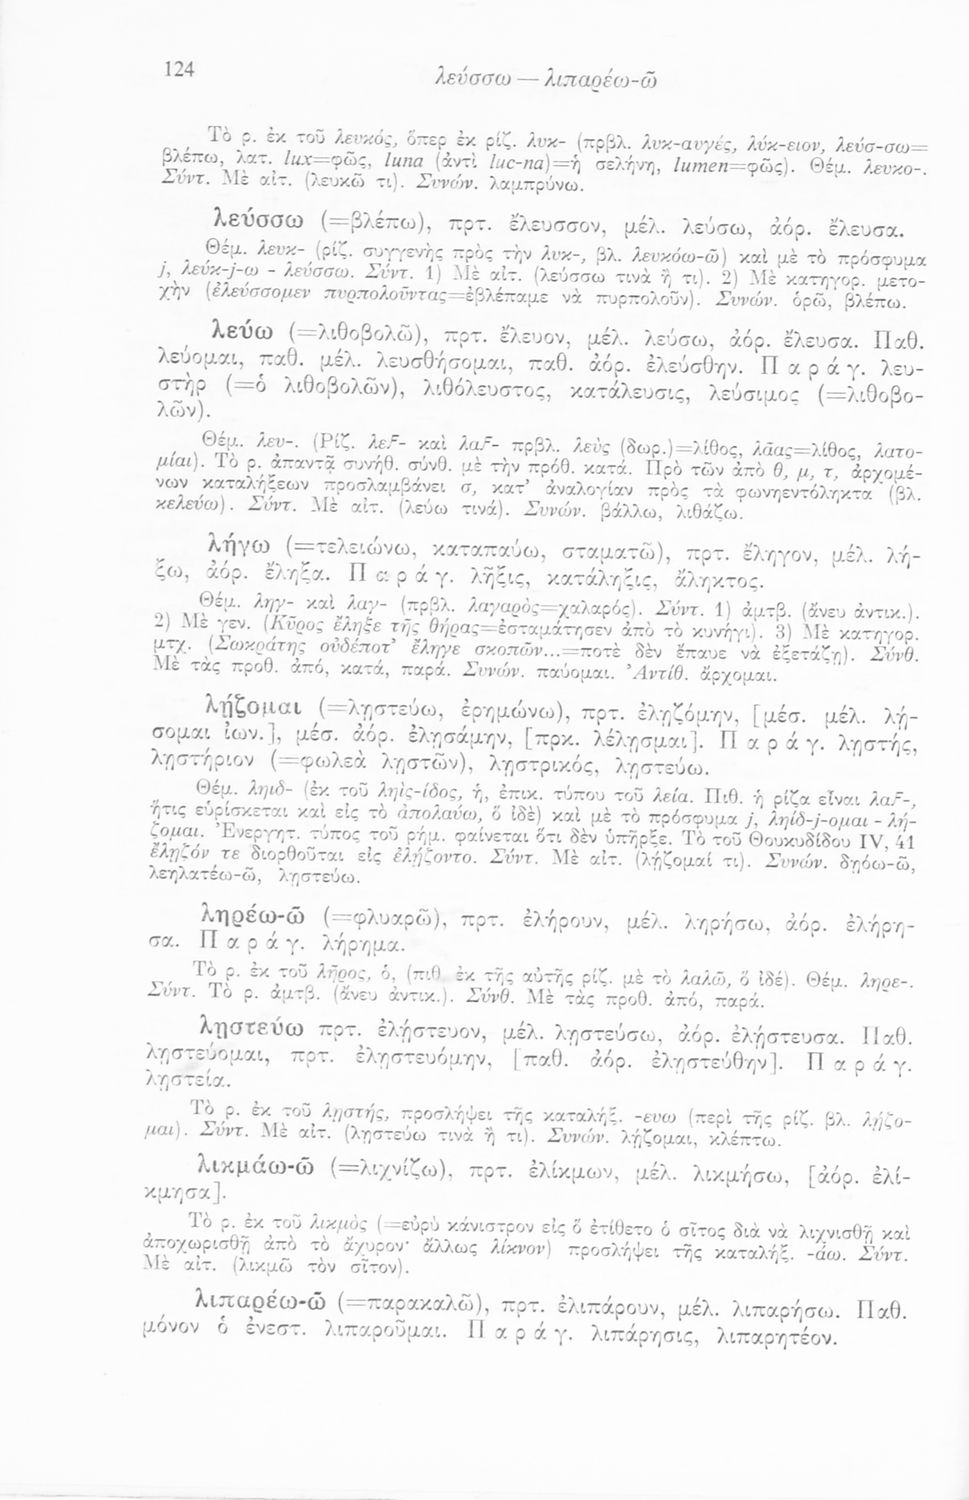 124
λεύσσω — λιπαρέω-ῶ
Τὸ ρ. ἐκ τοῦ λευκός, ὅπερ ἐκ ρίζ. λυκ- (πρβλ. λυκ-αυγές, λύκ-ειον, λεύσ-σω=
βλέπω, λατ. lux=φῶς, luna (ἀντὶ luc-na)=ἡ σελήνη, lumen=φῶς). Θέμ. λευκο-.
Σύντ. Μὲ αἰτ. (λευκῶ τι). Συνών. λαμπρύνω.
λεύσσω (=βλέπω), πρτ. ἔλευσσον, μέλ. λεύσω, ἀόρ. ἔλευσα.
Θέμ. λευκ- (ρίζ. συγγενὴς πρὸς τὴν λυκ-, βλ. λευκόω-ῶ) καὶ μὲ τὸ πρόσφυμα
j, λεύκ-j-ω - λεύσσω. Σύντ. 1) Μὲ αἰτ. (λεύσσω τινὰ ἤ τι). 2) Μὲ κατηγορ. μετο-
χὴν (ἐλεύσσομεν πυρπολοῦντας=ἐβλέπαμε νὰ πυρπολοῦν). Συνών. ὁρῶ, βλέπω.
λεύω (=λιθοβολῶ), πρτ. ἔλευον, μέλ. λεύσω, ἀόρ. ἔλευσα. Παθ.
λεύομαι, παθ. μέλ. λευσθήσομαι, παθ. ἀόρ. ἐλεύσθην. Π α ρ ά γ. λευ-
στὴρ (=ὁ λιθοβολῶν), λιθόλευστος, κατάλευσις, λεύσιμος (=λιθοβο-
λῶν).
Θέμ. λευ-. (Ρίζ. λεF- καὶ λαF- πρβλ. λεὺς (δωρ.)=λίθος, λᾶας=λίθος, λατο-
μίαι). Τὸ ρ. ἀπαντᾷ συνήθ. σύνθ. μὲ τὴν πρόθ. κατά. Πρὸ τῶν ἀπὸ θ, μ, τ, ἀρχομέ-
νων καταλήξεων προσλαμβάνει σ, κατ’ ἀναλογίαν πρὸς τὰ φωνηεντόληκτα (βλ.
κελεύω). Σύντ. Μὲ αἰτ. (λεύω τινά). Συνών. βάλλω, λιθάζω.
λήγω (=τελειώνω, καταπαύω, σταματῶ), πρτ. ἔληγον, μέλ. λή-
ξω, ἀόρ. ἔληξα. Π α ρ ά γ. λῆξις, κατάληξις, ἄληκτος.
Θέμ. ληγ- καὶ λαγ- (πρβλ. λαγαρὸς=χαλαρός). Σύντ. 1) ἀμτβ. (ἄνευ ἀντικ.).
2) Μὲ γεν. (Κῦρος ἔληξε τῆς θήρας=ἐσταμάτησεν ἀπὸ τὸ κυνήγι). 3) Μὲ κατηγορ.
μτχ. (Σωκράτης οὐδέποτ’ ἔληγε σκοπῶν...=ποτὲ δὲν ἔπαυε νὰ ἐξετάζῃ). Σύνθ.
Μὲ τὰς προθ. ἀπό, κατά, παρά. Συνών. παύομαι. Ἀντίθ. ἄρχομαι.
λῄζομαι (=λῃστεύω, ἐρημώνω), πρτ. ἐλῃζόμην, [μέσ. μέλ. λῄ-
σομαι ἰων.], μέσ. ἀόρ. ἐλῃσάμην, [πρκ. λέλῃσμαι]. Π α ρ ά γ. λῃστής,
λῃστήριον (=φωλεὰ λῃστῶν), λῃστρικός, λῃστεύω.
Θέμ. ληιδ- (ἐκ τοῦ ληὶς-ίδος, ἡ, ἐπικ. τύπου τοῦ λεία. Πιθ. ἡ ρίζα εἶναι λαF-,
ἥτις εὑρίσκεται καὶ εἰς τὸ ἀπολαύω, ὃ ἰδὲ) καὶ μὲ τὸ πρόσφυμα j, ληίδ-j-ομαι - λῄ-
ζομαι. Ἐνεργητ. τύπος τοῦ ρήμ. φαίνεται ὅτι δὲν ὑπῆρξε. Τὸ τοῦ Θουκυδίδου IV, 41
ἐλῃζόν τε διορθοῦται εἰς ἐλῄζοντο. Σύντ. Μὲ αἰτ. (λῄζομαί τι). Συνών. δῃόω-ῶ,
λεηλατέω-ῶ, λῃστεύω.
ληρέω-ῶ (=φλυαρῶ), πρτ. ἐλήρουν, μέλ. ληρήσω, ἀόρ. ἐλήρη-
σα. Π α ρ ά γ. λήρημα.
Τὸ ρ. ἐκ τοῦ λῆρος, ὁ, (πιθ. ἐκ τῆς αὐτῆς ρίζ. μὲ τὸ λαλῶ, ὃ ἰδέ). Θέμ. ληρε-.
Σύντ. Τὸ ρ. ἀμτβ. (ἄνευ ἀντικ.). Σύνθ. Μὲ τὰς προθ. ἀπό, παρά.
λῃστεύω πρτ. ἐλῄστευον, μέλ. λῃστεύσω, ἀόρ. ἐλῄστευσα. Παθ.
λῃστεύομαι, πρτ. ἐλῃστευόμην, [παθ. ἀόρ. ἐλῃστεύθην]. Π α ρ ά γ.
λῃστεία.
Τὸ ρ. ἐκ τοῦ λῃστής, προσλήψει τῆς καταλήξ. -ευω (περὶ τῆς ρίζ. βλ. λῄζο-
μαι). Σύντ. Μὲ αἰτ. (λῃστεύω τινὰ ἤ τι). Συνών. λῄζομαι, κλέπτω.
λικμάω-ῶ (=λιχνίζω), πρτ. ἐλίκμων, μέλ. λικμήσω, [ἀόρ. ἐλί-
κμησα].
Τὸ ρ. ἐκ τοῦ λικμὸς (=εὐρὺ κάνιστρον εἰς ὃ ἐτίθετο ὁ σῖτος διὰ νὰ λιχνισθῇ καὶ
ἀποχωρισθῇ ἀπὸ τὸ ἄχυρον· ἄλλως λίκνον) προσλήψει τῆς καταλήξ. -άω. Σύντ.
Μὲ αἰτ. (λικμῶ τὸν σῖτον).
λιπαρέω-ῶ (=παρακαλῶ), πρτ. ἐλιπάρουν, μέλ. λιπαρήσω. Παθ.
μόνον ὁ ἐνεστ. λιπαροῦμαι. Π α ρ ά γ. λιπάρησις, λιπαρητέον.